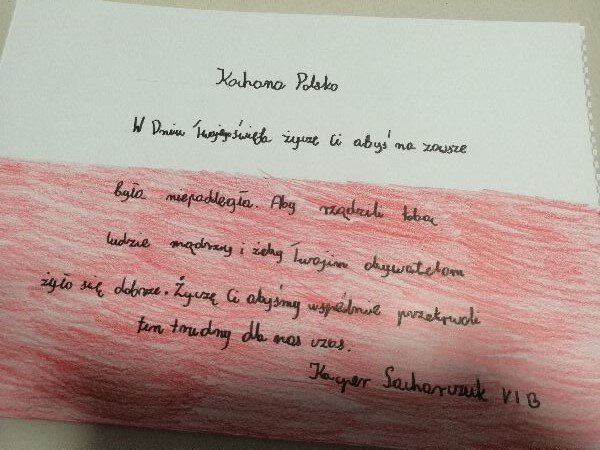 Kochana Polsko
W Dniu Twojego święta życzę Ci abyś na zawsze
była niepodległa. Aby rządzili tobą
ludzie mądrzy i żeby Twoim obywatelom
żyło się dobrze. Życzę Ci abyśmy wspólnie przetrwali
ten trudny dla nas czas.
Kacper Sacharczuk VI B